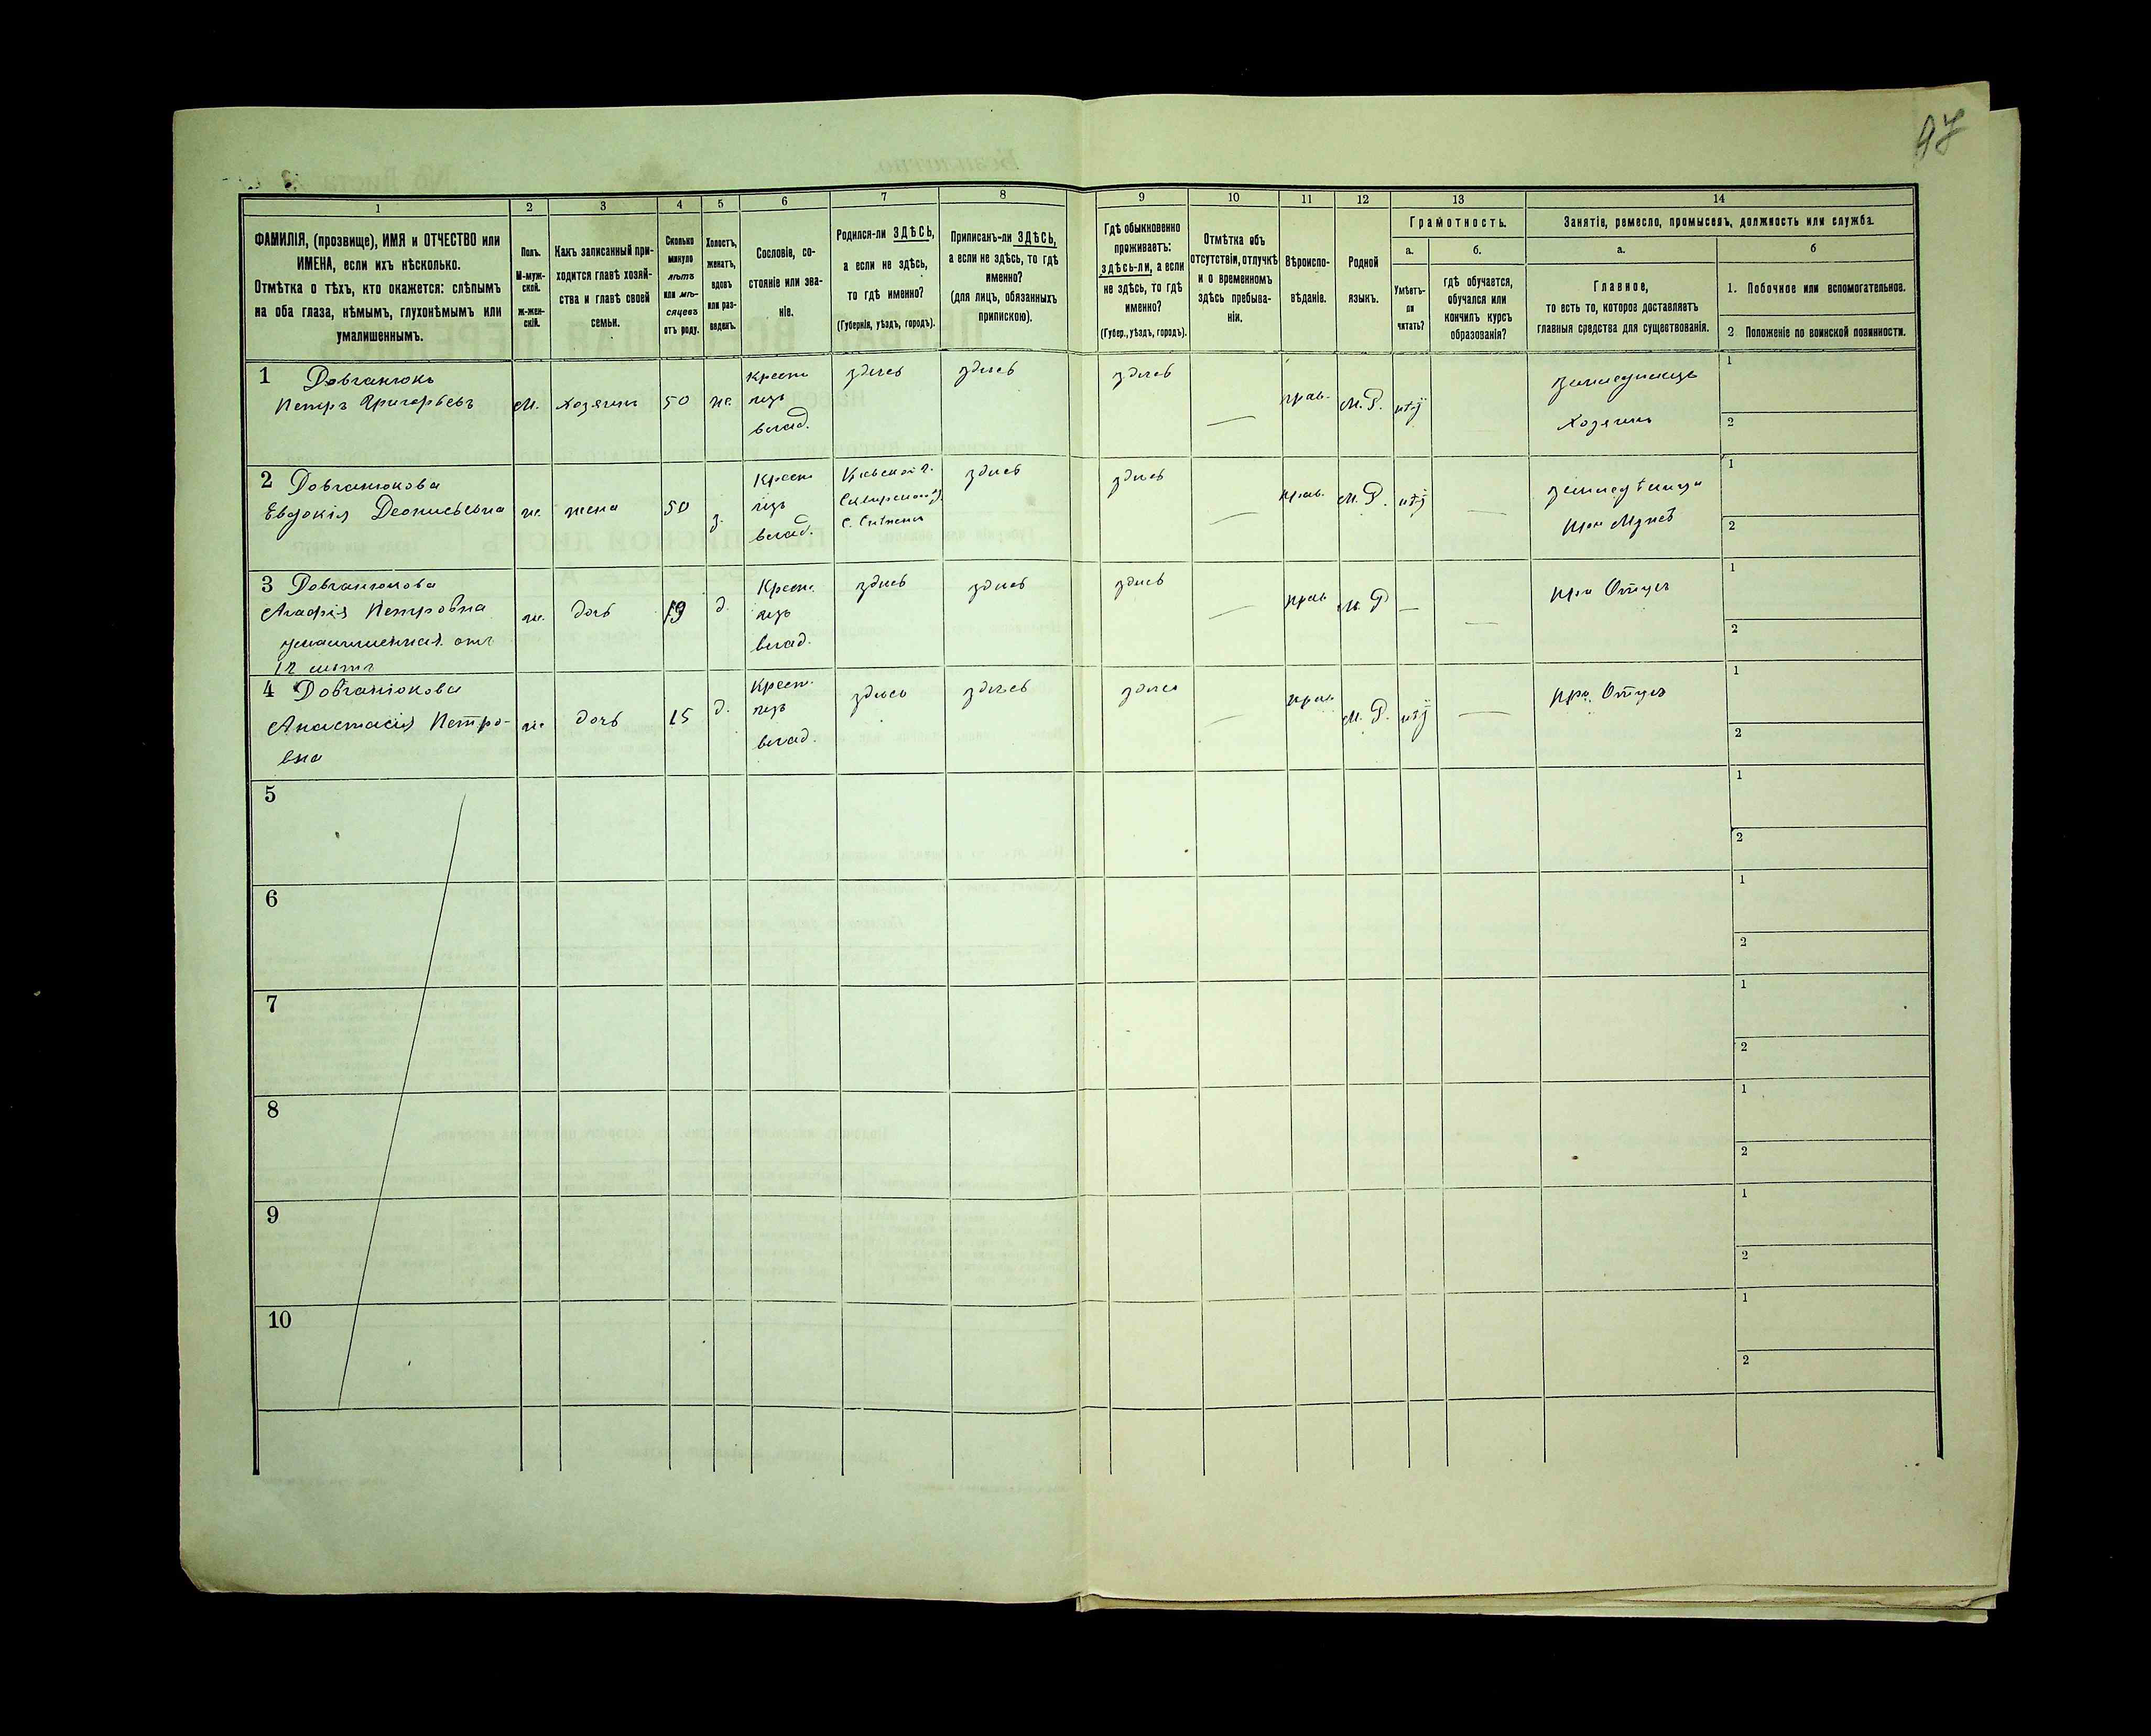 97
1
2
3
4
5
6
7
8
9
10
11
12
13
14
ФАМИЛІЯ, (прозвище), ИМЯ и ОТЧЕСТВО или
ИМЕНА, если ихъ нѣсколько.
Отмѣтка о тѣхъ, кто окажется: слѣпымъ
на оба глаза, нѣмымъ, глухонѣмымъ или
умалишеннымъ.
Полъ.
М-муж-
ской.
ж-жен-
скій.
Какъ записанный при-
ходится главѣ хозяй-
ства и главѣ своей
семьи.
Сколько
минуло
лѣтъ
или мѣ-
сяцевъ
отъ роду.
Холостъ,
женатъ,
вдовъ
или раз-
веденъ.
Сословіе, со-
стояніе или зва-
ніе.
Родился-ли ЗДѢСЬ,
а если не здѣсь,
то гдѣ именно?
(Губернія, уѣздъ, городъ).
Приписанъ-ли ЗДѢСЬ,
а если не здѣсь, то гдѣ
именно?
(для лицъ, обязанныхъ
припискою).
Гдѣ обыкновенно
проживаетъ:
здѣсь-ли, а если
не здѣсь, то гдѣ
именно?
(Губер., уѣздъ, городъ).
Отмѣтка объ
отсутствіи, отлучкѣ
и о временномъ
здѣсь пребыва-
ніи.
Вѣроиспо-
вѣданіе.
Родной
языкъ.
Грамотность.
а.
б.
Умѣетъ-
ли
читать?
гдѣ обучается,
обучался или
кончилъ курсъ
образованія?
Занятіе, ремесло, промыселъ, должность или служба.
а.
б
Главное,
то есть то, которое доставляетъ
главныя средства для существованія.
1. Побочное или вспомогательное.
2 Положеніе по воинской повинности.
1 Довганюкъ
Петръ Григорьевъ
М.
хозяинъ
50
ж.
Крест.
изъ
влад.
здѣсь
здѣсь
здѣсь
—
прав.
М. Р.
нѣтъ
земледѣлецъ
Хозяинъ
1
2
2 Довганюкова
Евдокія Деонисьевна
ж.
жена
50
з.
Крест.
изъ
влад.
Кіевской г.
Сквирскаго у.
с.
здѣсь
здѣсь
—
прав.
М. Р.
нѣтъ
—
при Мужѣ
1
2
3 Довганюкова
Агафія Петровна
умалишенная отъ
12 лѣтъ
ж.
дочь
19
д.
Крест.
изъ
влад.
здѣсь
здѣсь
здѣсь
—
прав.
М. Р
—
—
при Отцѣ
1
2
4 Довганюкова
Анастасія Петро-
вна
ж.
дочь
15
д.
Крест.
изъ
влад.
здѣсь
здѣсь
здѣсь
—
прав.
М. Р.
нѣтъ
—
при Отцѣ
1
2
5
1
2
6
1
2
7
1
2
8
1
2
9
1
2
10
1
2